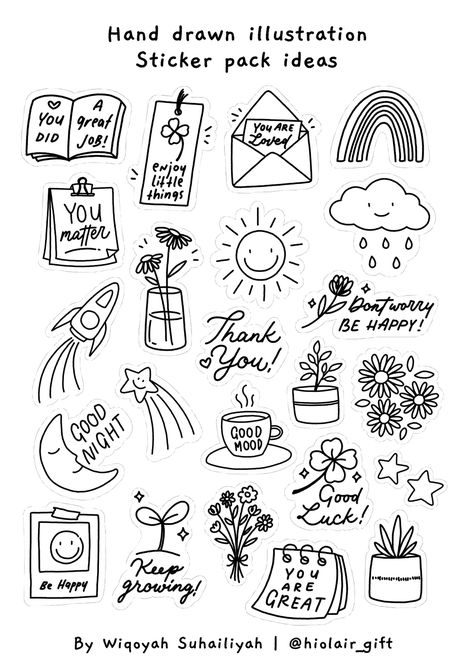 Hand drawn illustration
Sticker pack ideas
YOU
DID
A
great
JOB!
enjoy
little
things
YOU ARE
Loved
YOU
matter
Don't worry
BE HAPPY!
Thank
You!
GOOD
NIGHT
GOOD
MOOD
Good
Luck!
Be Happy
Keep
growing!
YOU
ARE
GREAT
By Wiqoyah Suhailiyah | @hiolair_gift